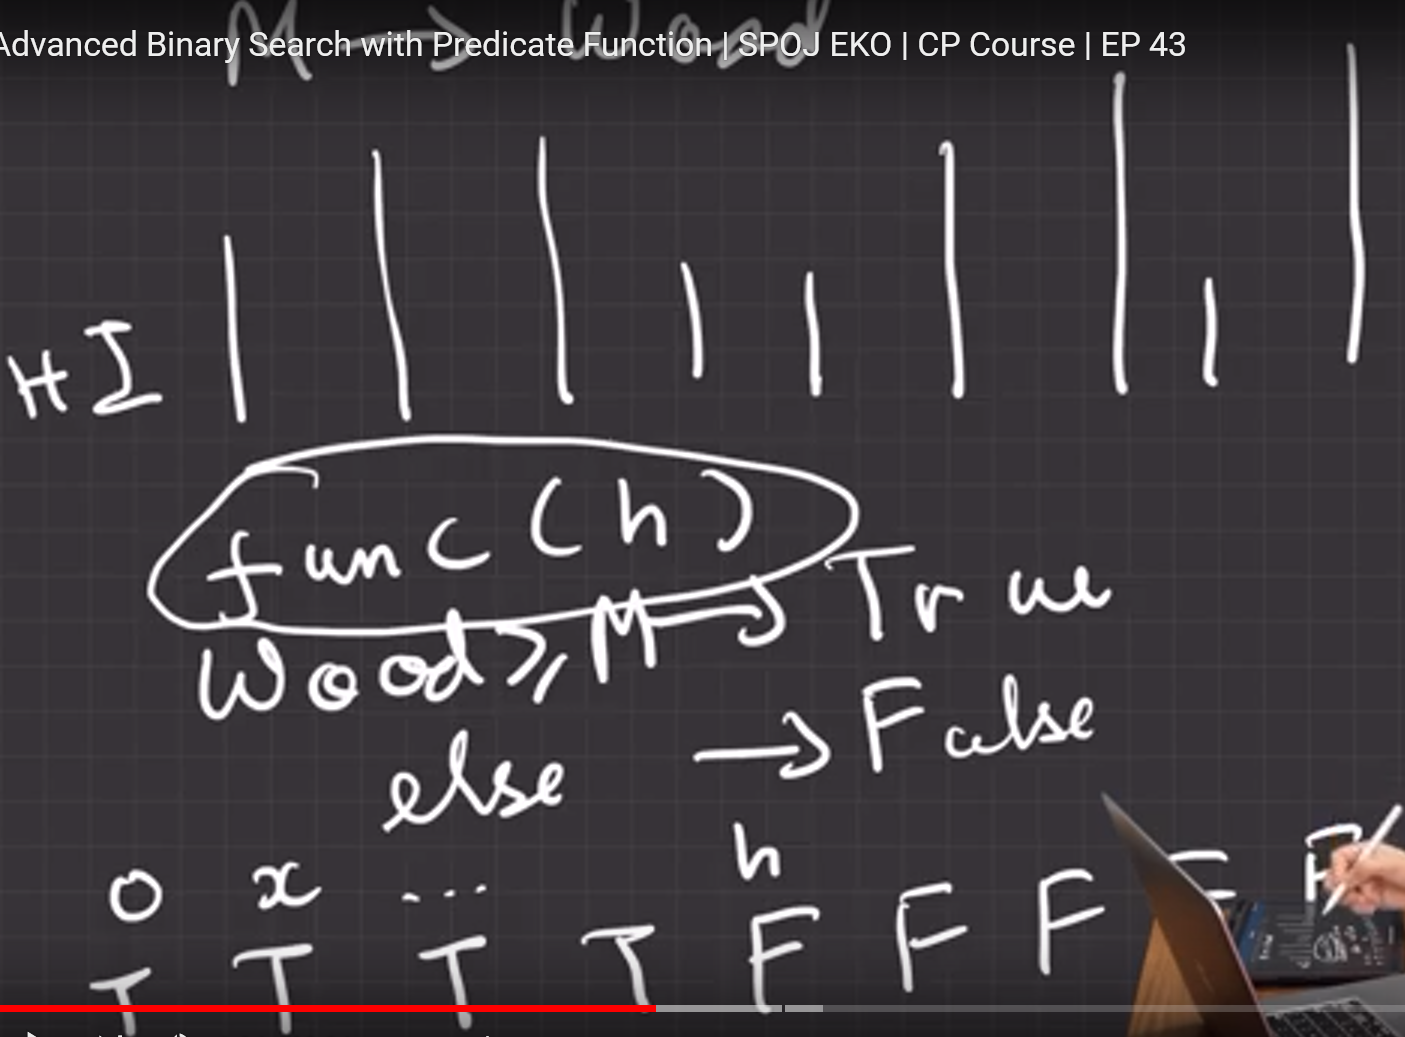 M → Wood
Advanced Binary Search with Predicate Function | SPOJ EKO | CP Course | EP 43
HI
func(h)
Wood ≥ M → True
else → False
0 x ... h
T T T T F F F F F